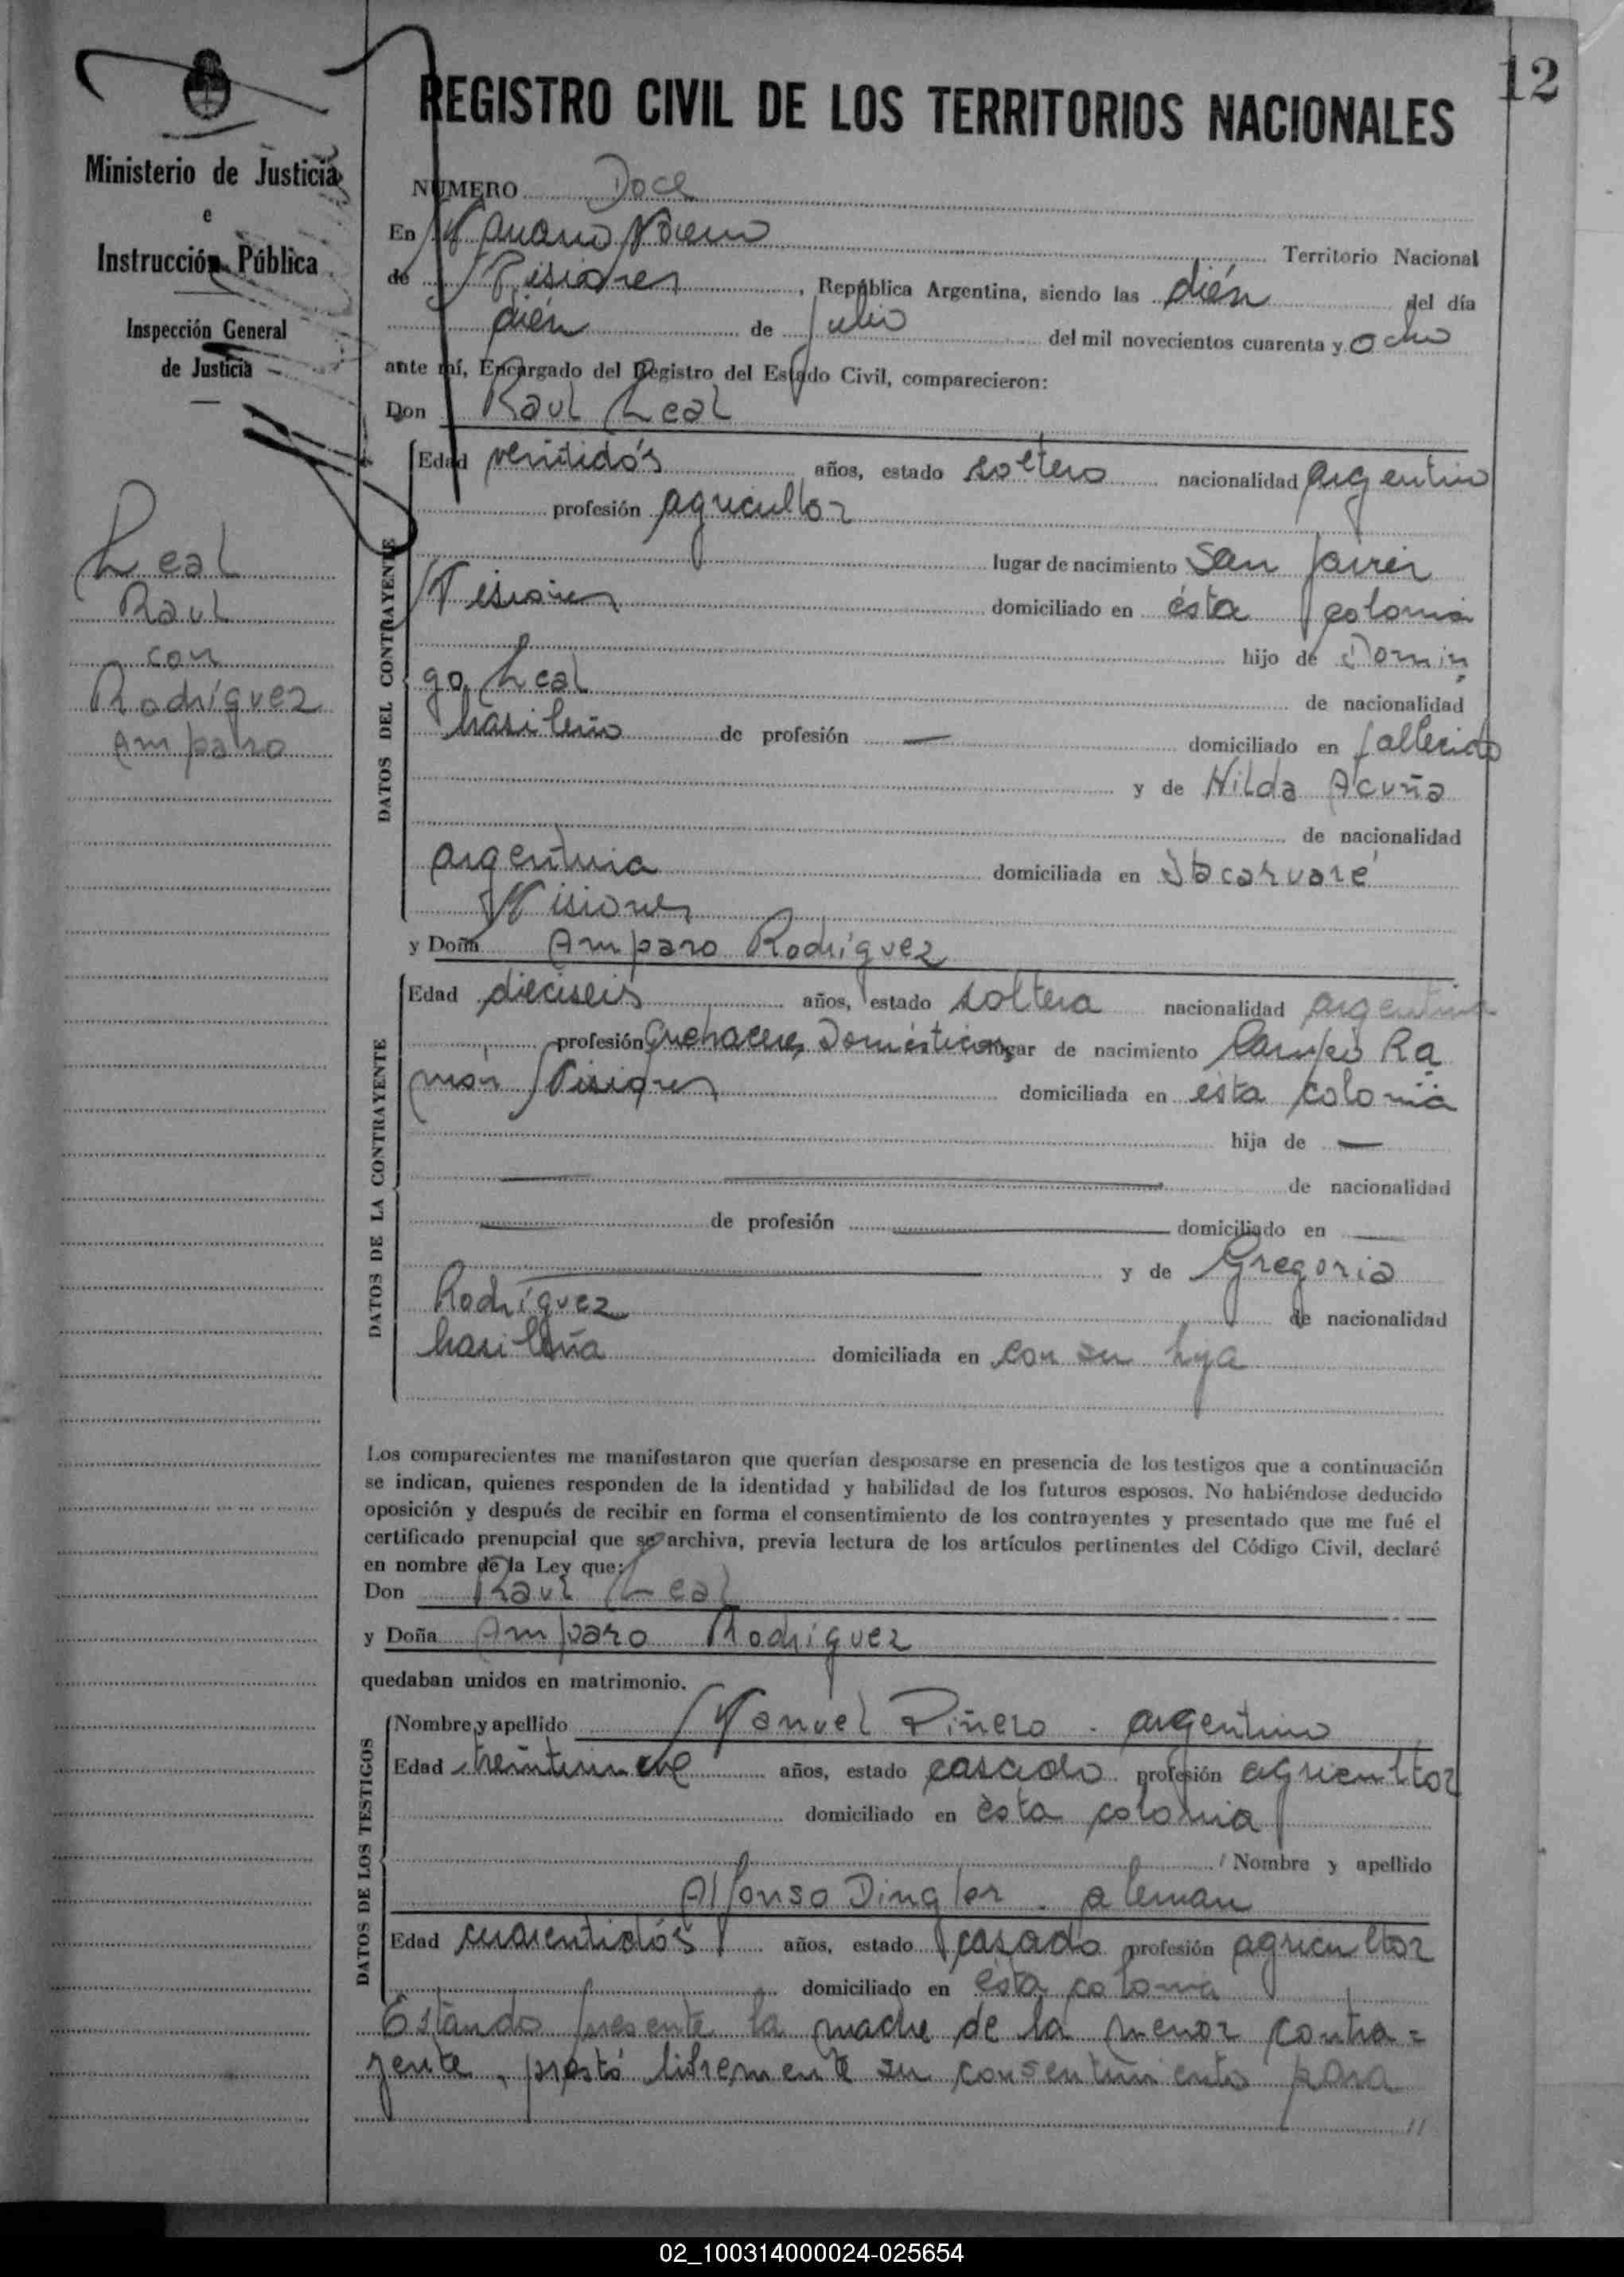 12
REGISTRO CIVIL DE LOS TERRITORIOS NACIONALES
Ministerio de Justicia
e
Instrucción Pública
Inspección General
de Justicia
Leal
Raul
con
Rodríguez
Amparo
NÚMERO Doce
En Mariano Moreno Territorio Nacional
de Misiones, República Argentina, siendo las diéz del día
diéz de julio del mil novecientos cuarenta y ocho
ante mí, Encargado del Registro del Estado Civil, comparecieron:
Don Raul Leal
DATOS DEL CONTRAYENTE
Edad veintidós años, estado soltero nacionalidad argentino
profesión agricultor
lugar de nacimiento San Javier
Misiones domiciliado en ésta colonia
hijo de Domin
go Leal de nacionalidad
brasileño de profesión — domiciliado en fallecido
y de Hilda Acuña
de nacionalidad
argentina domiciliada en Itacaruaré
Misiones
y Doña Amparo Rodríguez
DATOS DE LA CONTRAYENTE
Edad dieciseis años, estado soltera nacionalidad argentina
profesión Quehaceres Domésticos lugar de nacimiento Campo Ra
mon Misiones domiciliada en ésta colonia
hija de —
de nacionalidad
de profesión domiciliado en
y de Gregoria
Rodríguez de nacionalidad
brasileña domiciliada en con su hija
Los comparecientes me manifestaron que querían desposarse en presencia de los testigos que a continuación
se indican, quienes responden de la identidad y habilidad de los futuros esposos. No habiéndose deducido
oposición y después de recibir en forma el consentimiento de los contrayentes y presentado que me fué el
certificado prenupcial que se archiva, previa lectura de los artículos pertinentes del Código Civil, declaré
en nombre de la Ley que:
Don Raul Leal
y Doña Amparo Rodríguez
quedaban unidos en matrimonio.
DATOS DE LOS TESTIGOS
Nombre y apellido Manuel Piñero - argentino
Edad años, estado casado profesión agricultor
domiciliado en ésta colonia
Nombre y apellido
Alfonso Dingler - aleman
Edad cuarentidós años, estado casado profesión agricultor
domiciliado en ésta colonia
Estando presente la madre de la menor contra=
yente, prestó libremente su consentimiento para
//
02_100314000024-025654